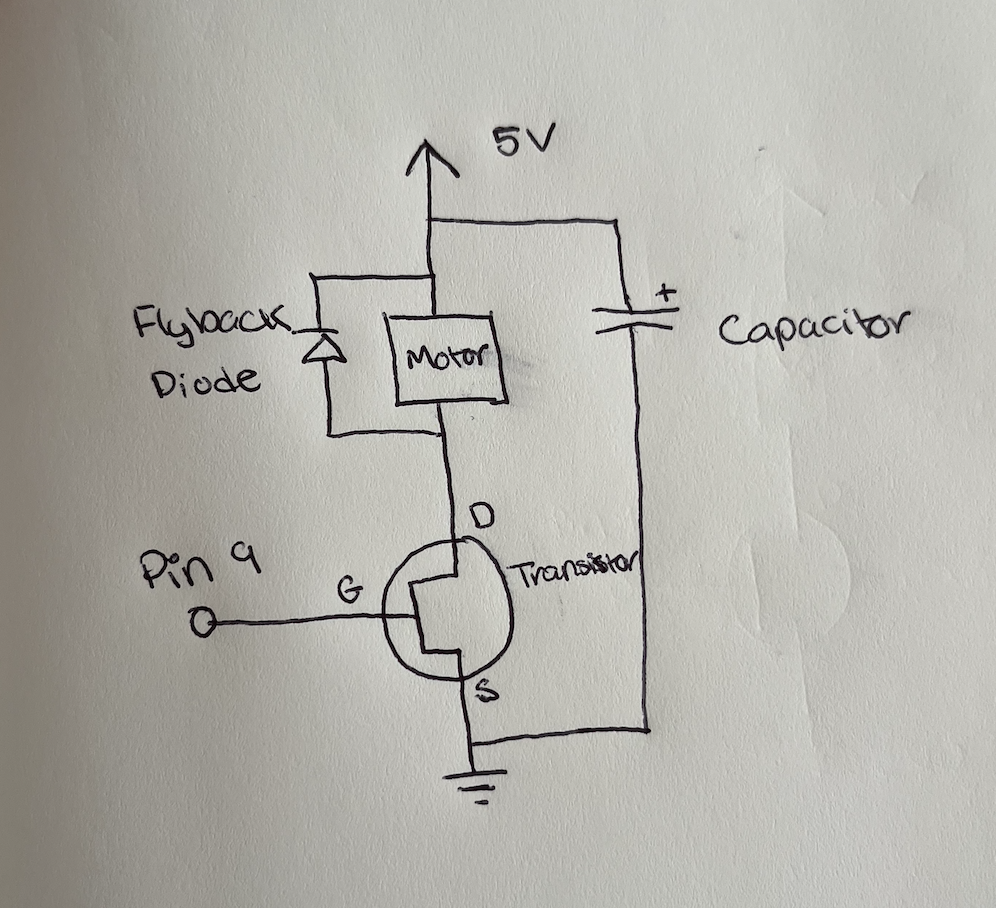 5V
+
Flyback
Diode
Motor
Capacitor
D
Pin 9
G
Transistor
S